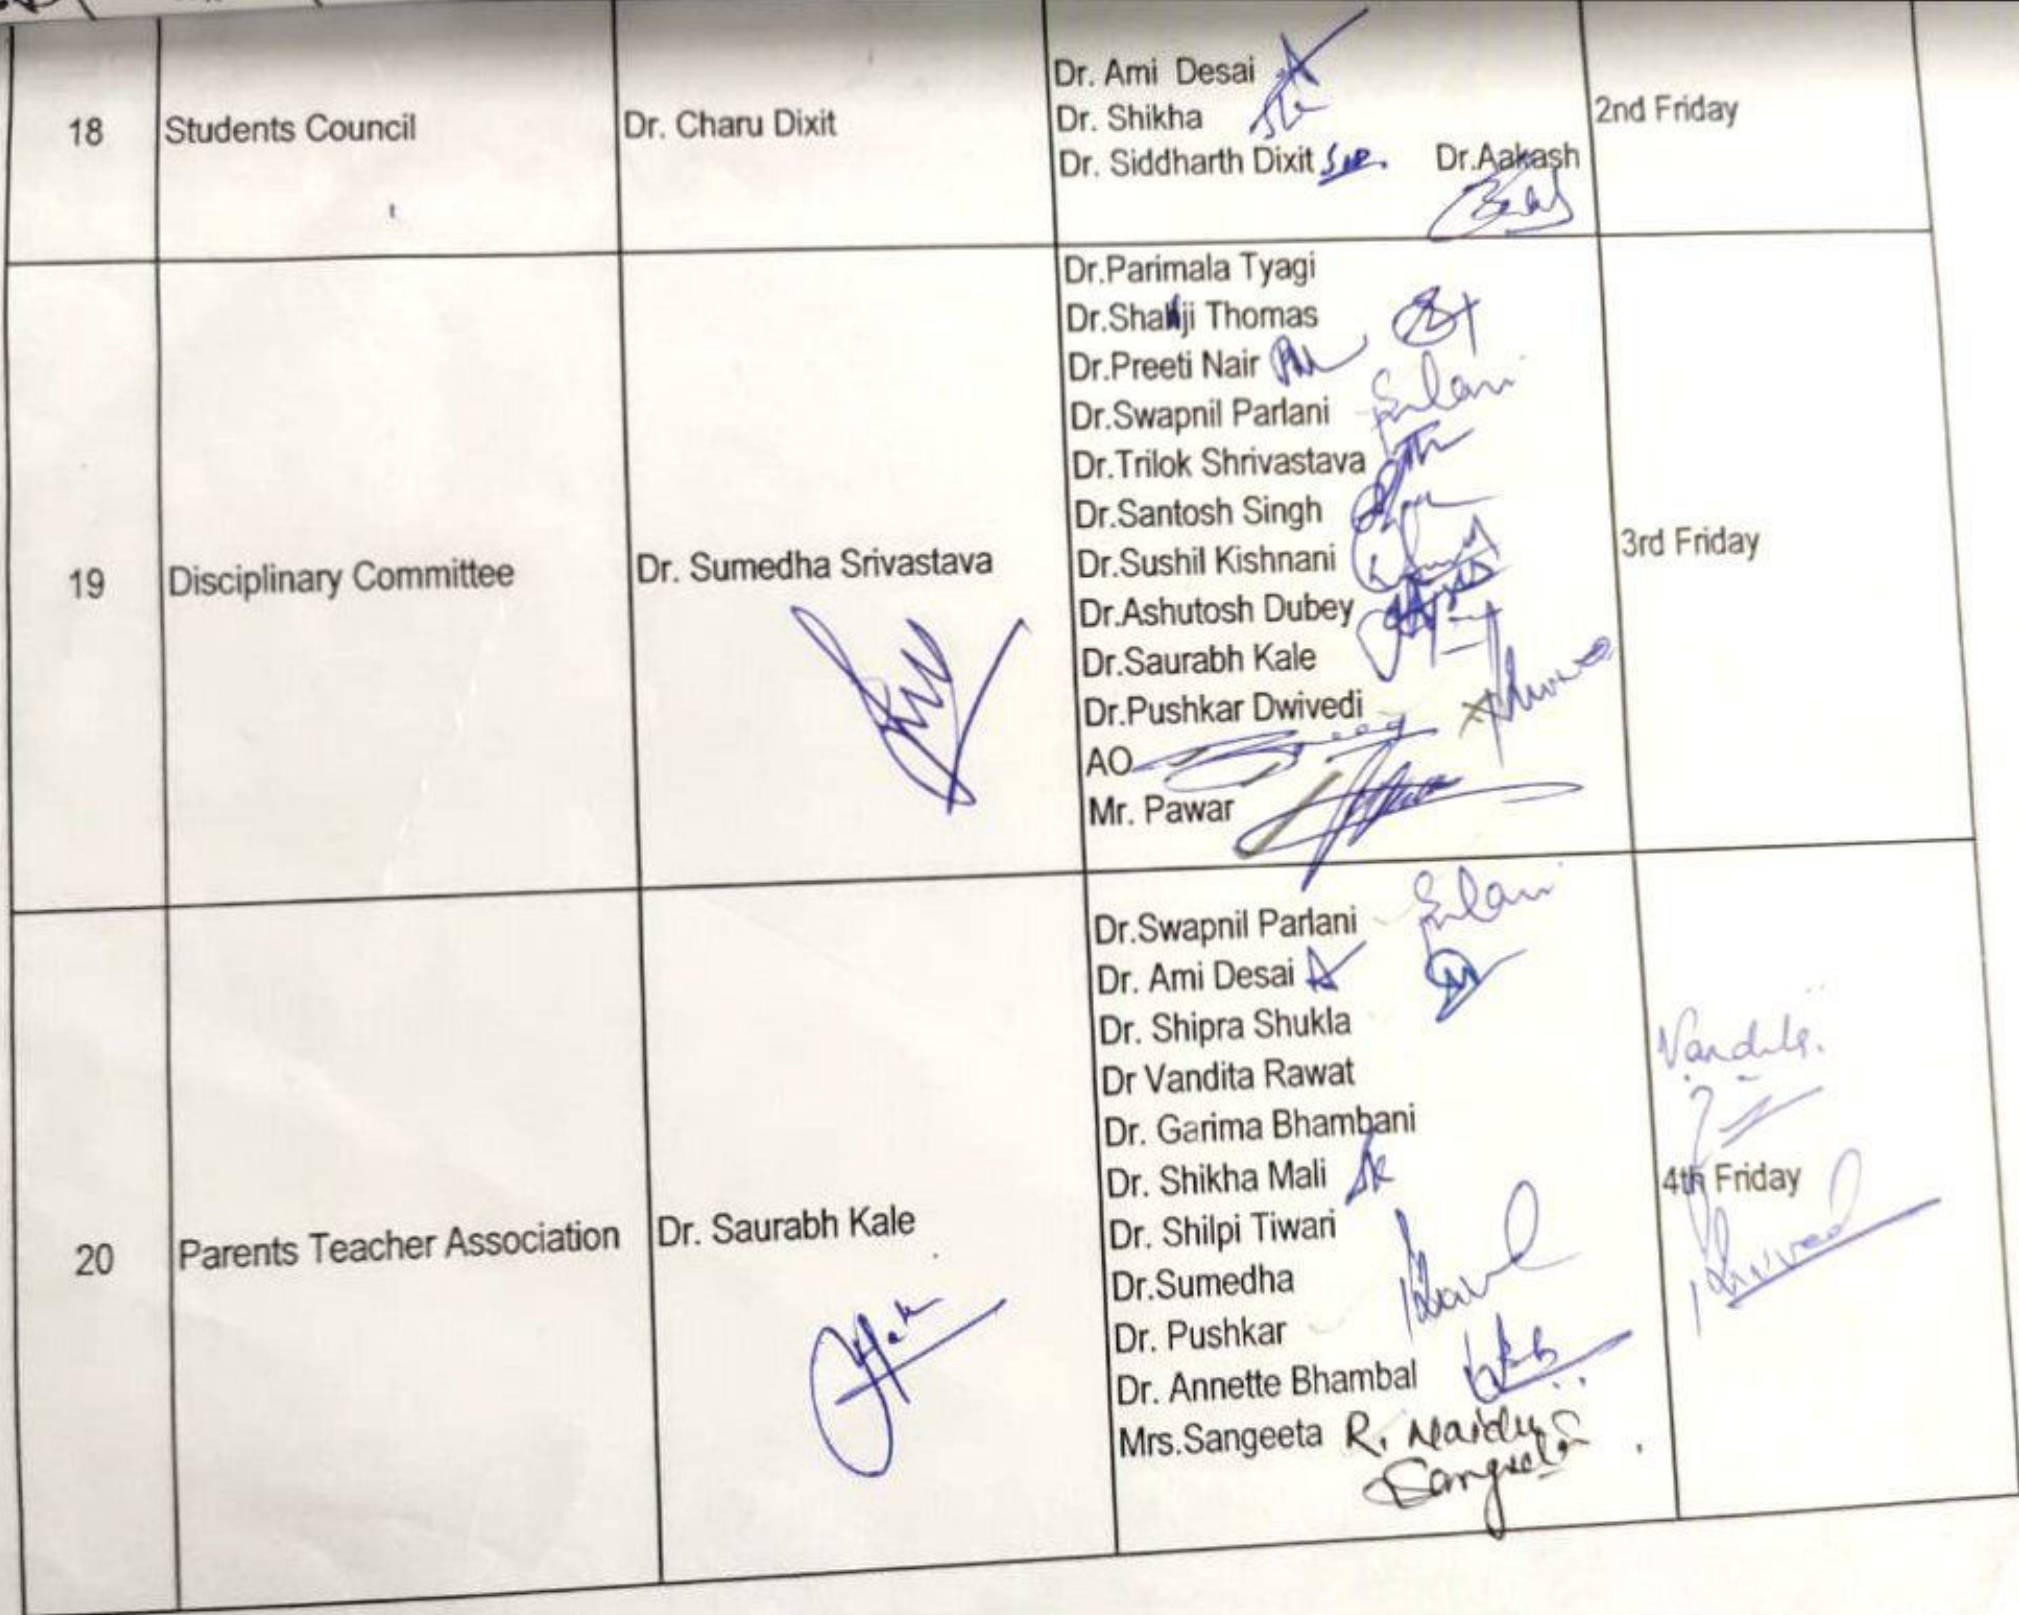 18
Students Council
Dr. Charu Dixit
Dr. Ami Desai
Dr. Shikha
Dr. Siddharth Dixit Dr.Aakash
2nd Friday
19
Disciplinary Committee
Dr. Sumedha Srivastava
Dr.Parimala Tyagi
Dr.Shaji Thomas
Dr.Preeti Nair
Dr.Swapnil Parlani
Dr.Trilok Shrivastava
Dr.Santosh Singh
Dr.Sushil Kishnani
Dr.Ashutosh Dubey
Dr.Saurabh Kale
Dr.Pushkar Dwivedi
AO
Mr. Pawar
3rd Friday
20
Parents Teacher Association
Dr. Saurabh Kale
Dr.Swapnil Parlani
Dr. Ami Desai
Dr. Shipra Shukla
Dr Vandita Rawat
Dr. Garima Bhambani
Dr. Shikha Mali
Dr. Shilpi Tiwari
Dr.Sumedha
Dr. Pushkar
Dr. Annette Bhambal
Mrs.Sangeeta R. Naidu
Sangeeta
4th Friday